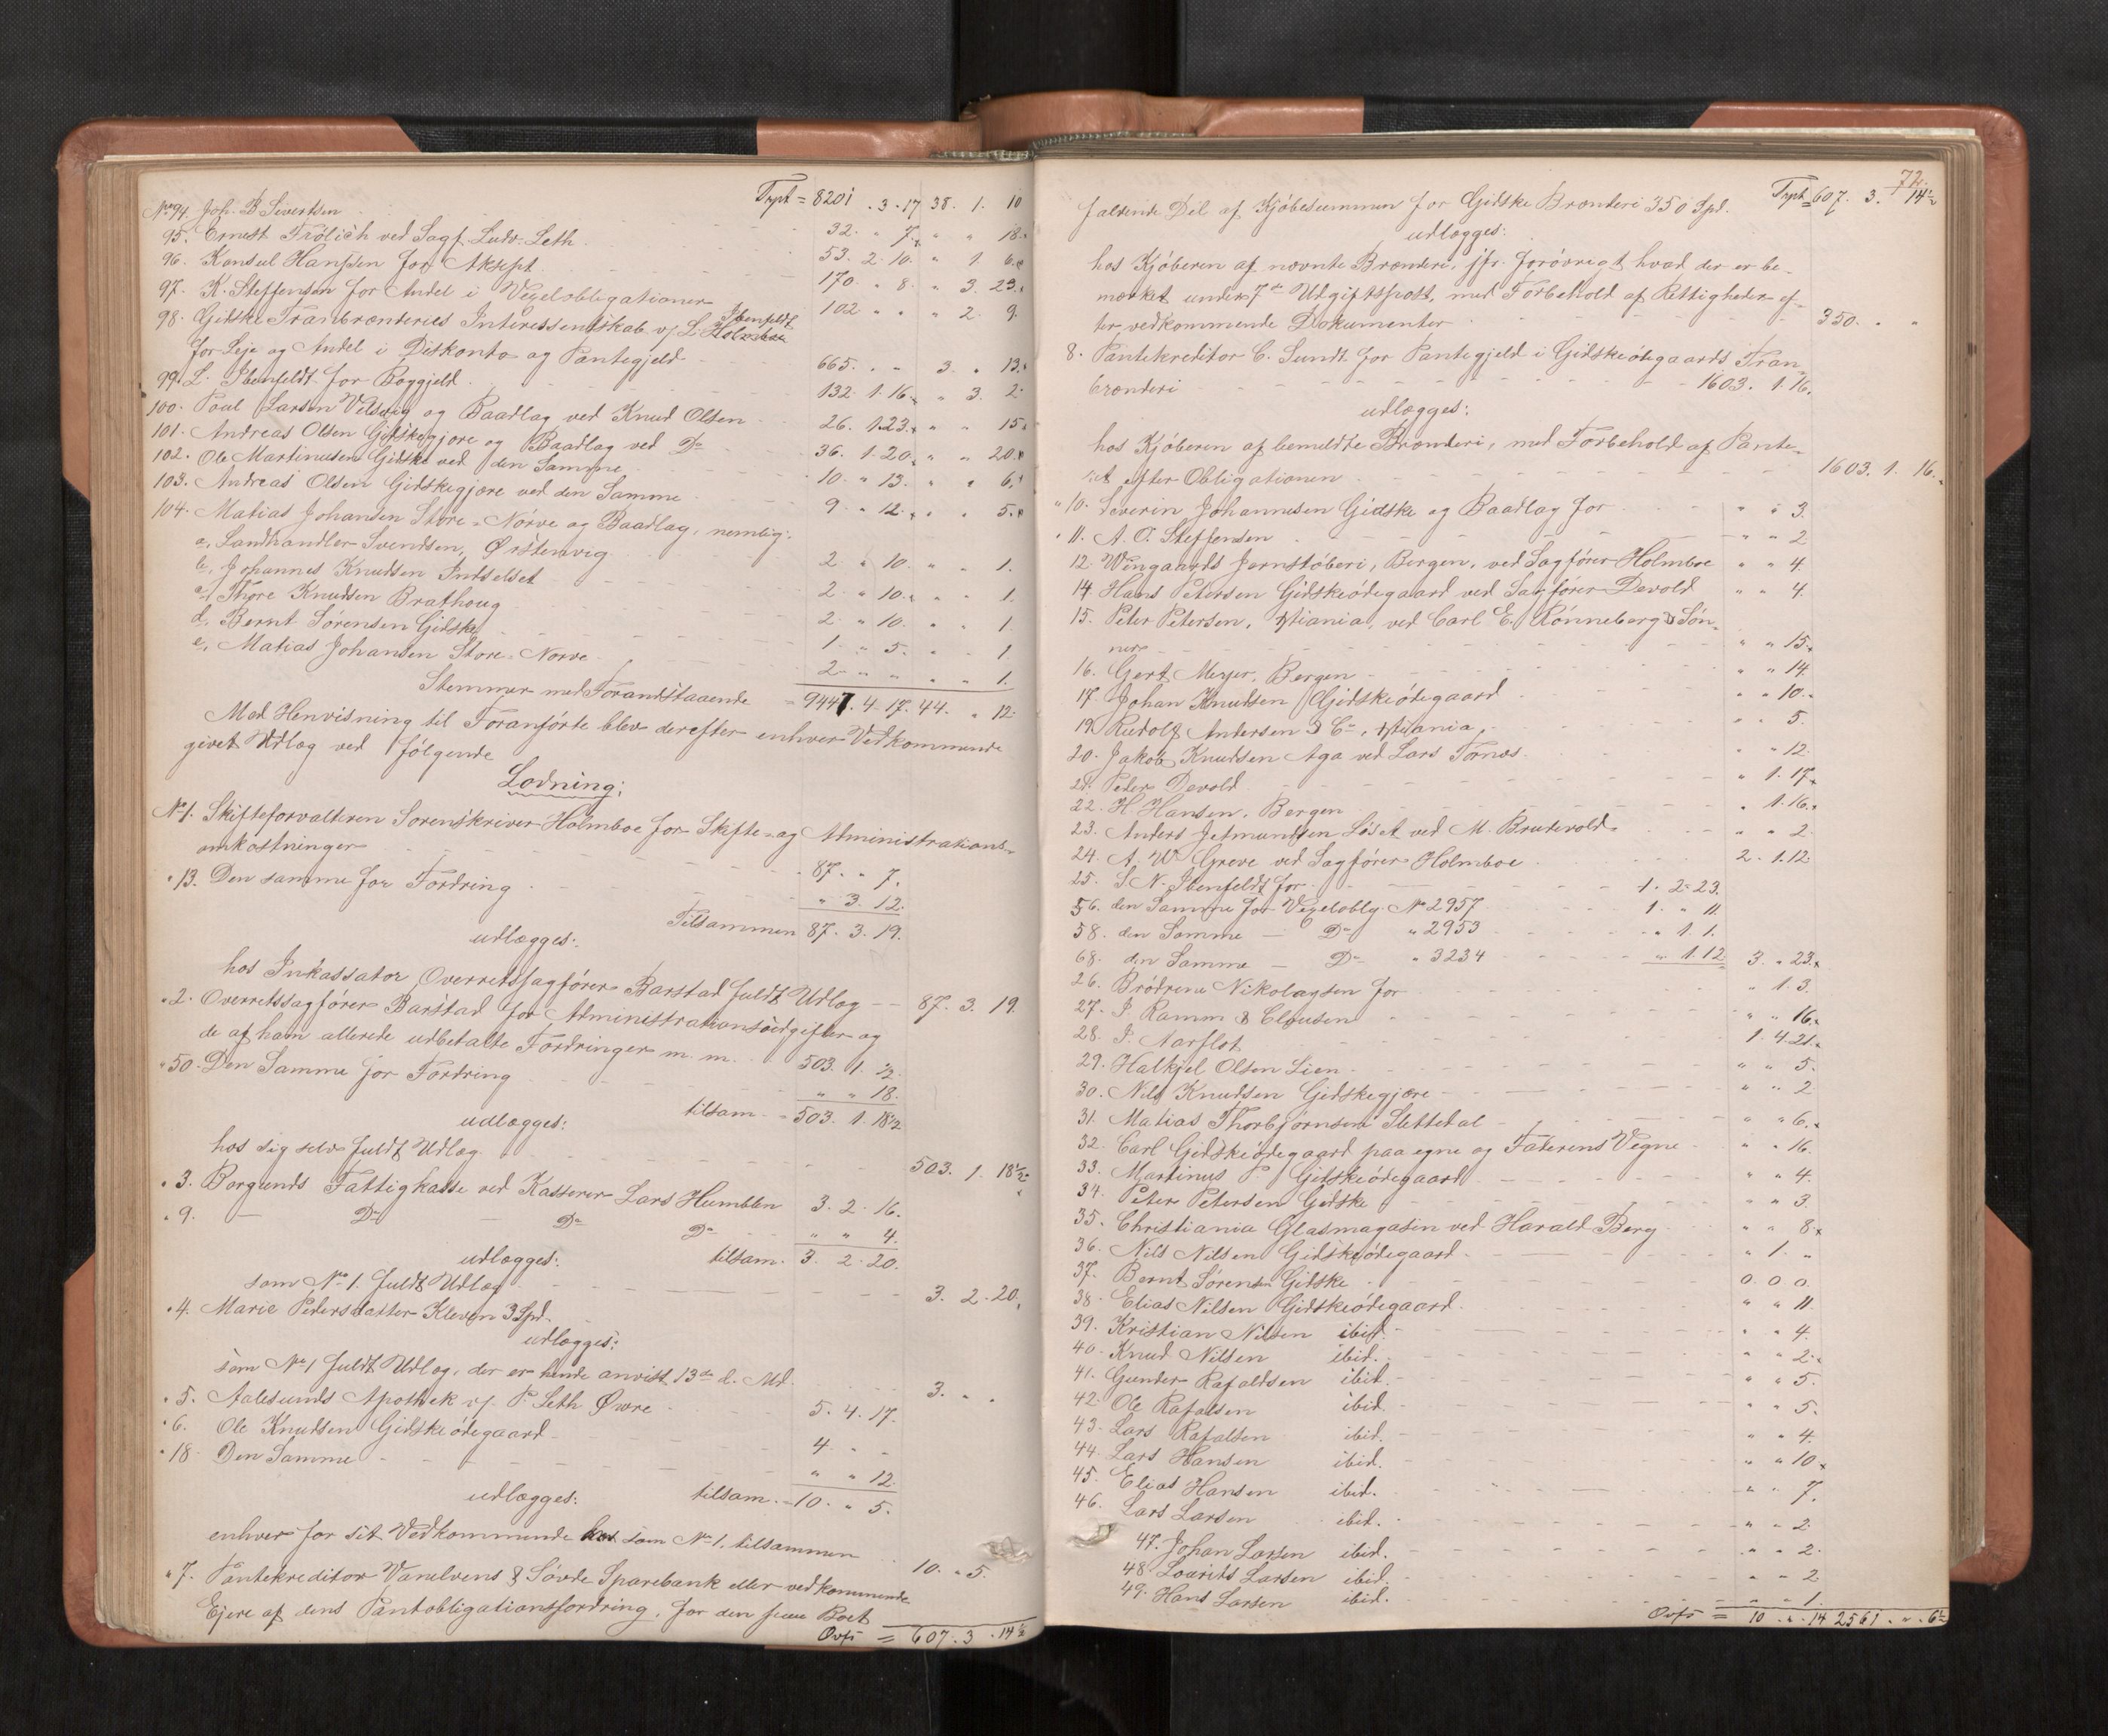 Trpt = 8201 . 3 . 17 38. 1. 10
No 94. Joh. B. Sivertsen 32. " 7. " " 18.
95. Ernest Frölich ved Sagf. Ludv. Leth 53. 2. 10. " 1. 6.
96. Konsul Hanssen for Aksept 170. " 8. " 3. 23.
97. K. Steffensen for Andel i Vexelobligationer 102 " " " 2. 9.
98. Gidske Tranbrænderies Interessentskab v/ L. Holmboe Ibenfeldt
for Leje og Andel i Diskonto og Pantegjeld 665. " " 3. " 13.
99. L. Ibenfeldt for Boggjeld 132. 1. 16. " 3. 2.
100. Poul Larsen Velsvig og Baadlag ved Knud Olsen 26. 1.23. " " 15.
101. Andreas Olsen Gidskegjøre og Baadlag ved Do 36. 1. 20. " " 20.
102. Ole Martinusen Gidske ved den Samme 10. " 13. " " 6.
103. Andreas Olsen Gidskegjøre ved den Samme 9. " 12. " " 5.
104. Matias Johansen Store-Nørve og Baadlag, nemlig:
a, Landhandler Svendsen, Ørstenvig 2. " 10. " " 1.
b, Johannes Knudsen Indselset 2. " 10. " " 1.
c, Thore Knudsen Brathoug 2. " 10. " " 1.
d, Bernt Sørensen Gidske 1. " 5. " " 1
e, Matias Johansen Store-Nørve 2. " " " " 1.
Stemmer med Forandstaaende = 9447. 4. 17. 44. " 12.
Med Henvisning til Foranførte blev derefter enhver Vedkommende
givet Udlæg ved følgende
Lodning:
No 1. Skifteforvalteren Sorenskriver Holmboe for Skifte- og Administrations-
omkostninger 87. " 7.
" 13. Den samme for Fordring " 3. 12.
Tilsammen 87. 3. 19.
udlægges:
hos Inkassator, Overretssagfører Barstad fuldt Udlæg 87. 3. 19.
" 2. Overretssagfører Barstad for Administrationsudgifter og
de af ham allerede udbetalte Fordringer m. m. 503. 1. ½
" 50. Den Samme for Fordring " " 18.
tilsam. = 503. 1. 18½
udlægges:
hos sig selv fuldt Udlæg 503. 1. 18½
" 3. Borgunds Fattigkasse ved Kasserer Lars Humblen 3. 2. 16.
" 9. — Do — Do Do " " 4.
udlægges: tilsam. 3. 2. 20.
som No 1. fuldt Udlæg 3. 2. 20.
" 4. Marie Pedersdatter Kleven 3 Spd.
udlægges:
som No 1 fuldt Udlæg, der er hende anvist 13de d. Md. 3. " "
" 5. Aalesunds Apothek v/ P. Leth Øwre 5. 4. 17.
" 6. Ole Knudsen Gidskeødegaard 4 " "
" 18 Den Samme " " 12.
udlægges: tilsam. = 10. " 5.
enhver for sit Vedkommende som No 1, tilsammen 10. " 5.
" 7. Pantekreditor Vanelvens & Søvde Sparebank eller vedkommende
Ejere af dens Pantobligationsfordring, for den paa Boet
Ovfs = 607. 3. 14½
72.
Trpt = 607. 3. 14½
faldende Del af Kjøbesummen for Gidske Brænderi 350 Spd.
udlægges:
hos Kjøberen af nævnte Brænderi, jfr. forøvrigt hvad der er be-
mærket under 7de Udgiftspost, med Forbehold af Rettigheder ef-
ter vedkommende Dokumenter 350. " "
8. Pantekreditor C. Sundt for Pantegjeld i Gidskeødegaards Tran-
brænderi 1603. 1. 16.
udlægges:
hos Kjøberen af bemeldte Brænderi, med Forbehold af Pante-
ret efter Obligationen 1603. 1. 16.
" 10. Severin Johannesen Gidske og Baadlag for " " 3.
" 11. A. O. Steffensen " " 2
12. Wingaards Jernstøberi, Bergen, ved Sagfører Holmboe " " 4.
14. Hans Petersen Gidskeødegaard ved Sagfører Devold " " 4.
15. Peter Petersen, Xtiania, ved Carl E. Rönneberg & Søn-
ner " " 15.
16. Gert Meyer, Bergen " " 14.
17. Johan Knudsen Gidskeødegaard " " 10.
19. Rudolf Andersen & Co, Xtiania, " " 5.
20. Jakob Knudsen Aga ved Lars Tornæs " " 12.
21. Peder Devold " 1. 17.
22. H. Hansen, Bergen " 1. 16.
23. Anders Jetmundsen Løset ved M. Brudevold " " 2.
24. A. W. Greve ved Sagfører Holmboe 2. 1. 12.
25. S. N. Ibenfeldt for 1. 2. 23.
56. den Samme for Vexeloblg. No 2957 1. " 11.
58. den Samme — Do " 2953 " 1. 1.
68. den Samme — Do " 3234 " 1. 12 3. " 23.
26. Brødrene Nikolaysen for " 1. 3.
27. P. Ramm & Clausen " " 16.
28. P. Aarflot 1. 4. 21.
29. Halkjel Olsen Lien " " 5.
30. Nils Knudsen Gidskegjøre " " 2
31. Matias Thorbjørnsen Slettedal " " 6.
32. Carl Gidskeødegaard paa egne og Faderens Vegne " " 16.
33. Martinus P. Gidskeødegaard " " 4.
34. Peter Petersen Gidske " " 3.
35. Christiania Glasmagasin ved Harald Berg " " 8
36. Nils Nilsen Gidskeødegaard " 1. "
37. Bernt Sørensen Gidske 0. 0 0.
38. Elias Nilsen Gidskeødegaard " " 11.
39. Kristian Nilsen ibid. " " 4.
40. Knud Nilsen ibid. " " 2.
41. Gunder Rafaldsen ibid. " " 5.
42. Ole Rafalsen ibid. " " 5.
43. Lars Rafalsen ibid. " " 4.
44. Lars Hansen ibid. " " 10
45. Elias Hansen ibid. " " 7.
46. Lars Larsen ibid. " " 2
47. Johan Larsen ibid. " " 2.
48. Lavrits Larsen ibid. " " 2
49. Hans Larsen ibid. " " 1.
Ovfs = 10 . " . 14 2561 . " . 6½